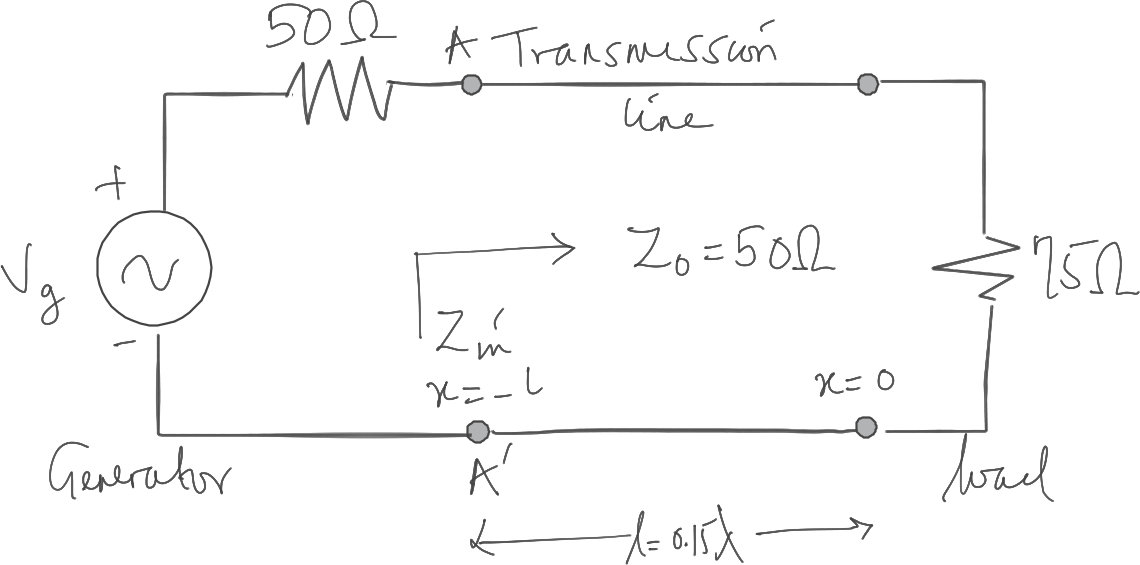 50Ω
A Transmission
line
+
Vg
-
Z₀ = 50Ω
75Ω
Zin
x = -l
x = 0
Generator
A'
load
l = 0.15λ